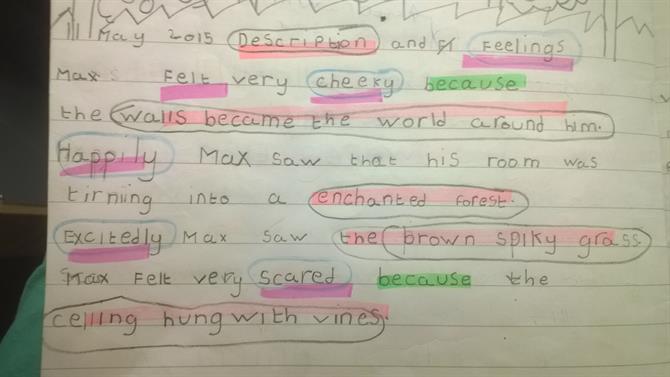 May 2015 Description and Feelings
Max Felt very cheeky because
the walls became the world around him.
Happily Max saw that his room was
tirning into a enchanted forest.
Excitedly Max saw the brown spiky grass.
Max Felt very scared because the
celling hung with vines.